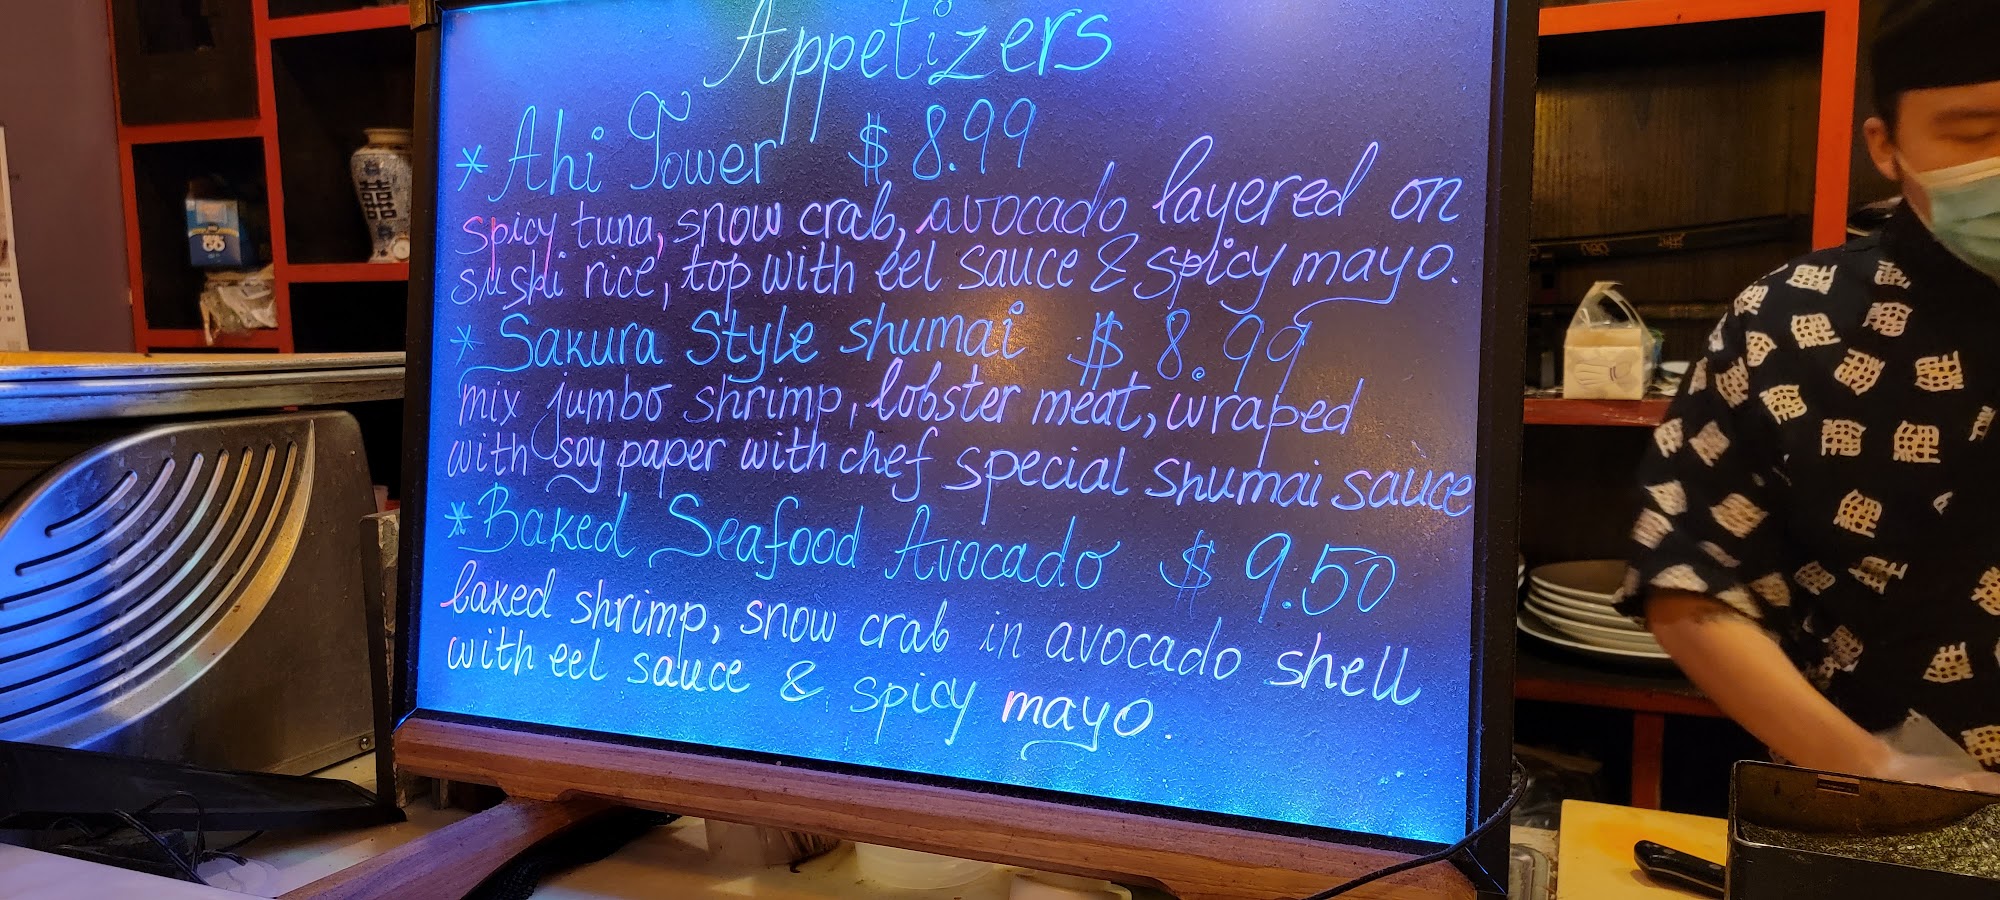 Appetizers
* Ahi Tower $ 8.99
spicy tuna, snow crab, avocado layered on
sushi rice, top with eel sauce & spicy mayo.
* Sakura Style shumai $ 8.99
mix jumbo shrimp, lobster meat, wraped
with soy paper with chef special shumai sauce
* Baked Seafood Avocado $ 9.50
baked shrimp, snow crab in avocado shell
with eel sauce & spicy mayo.